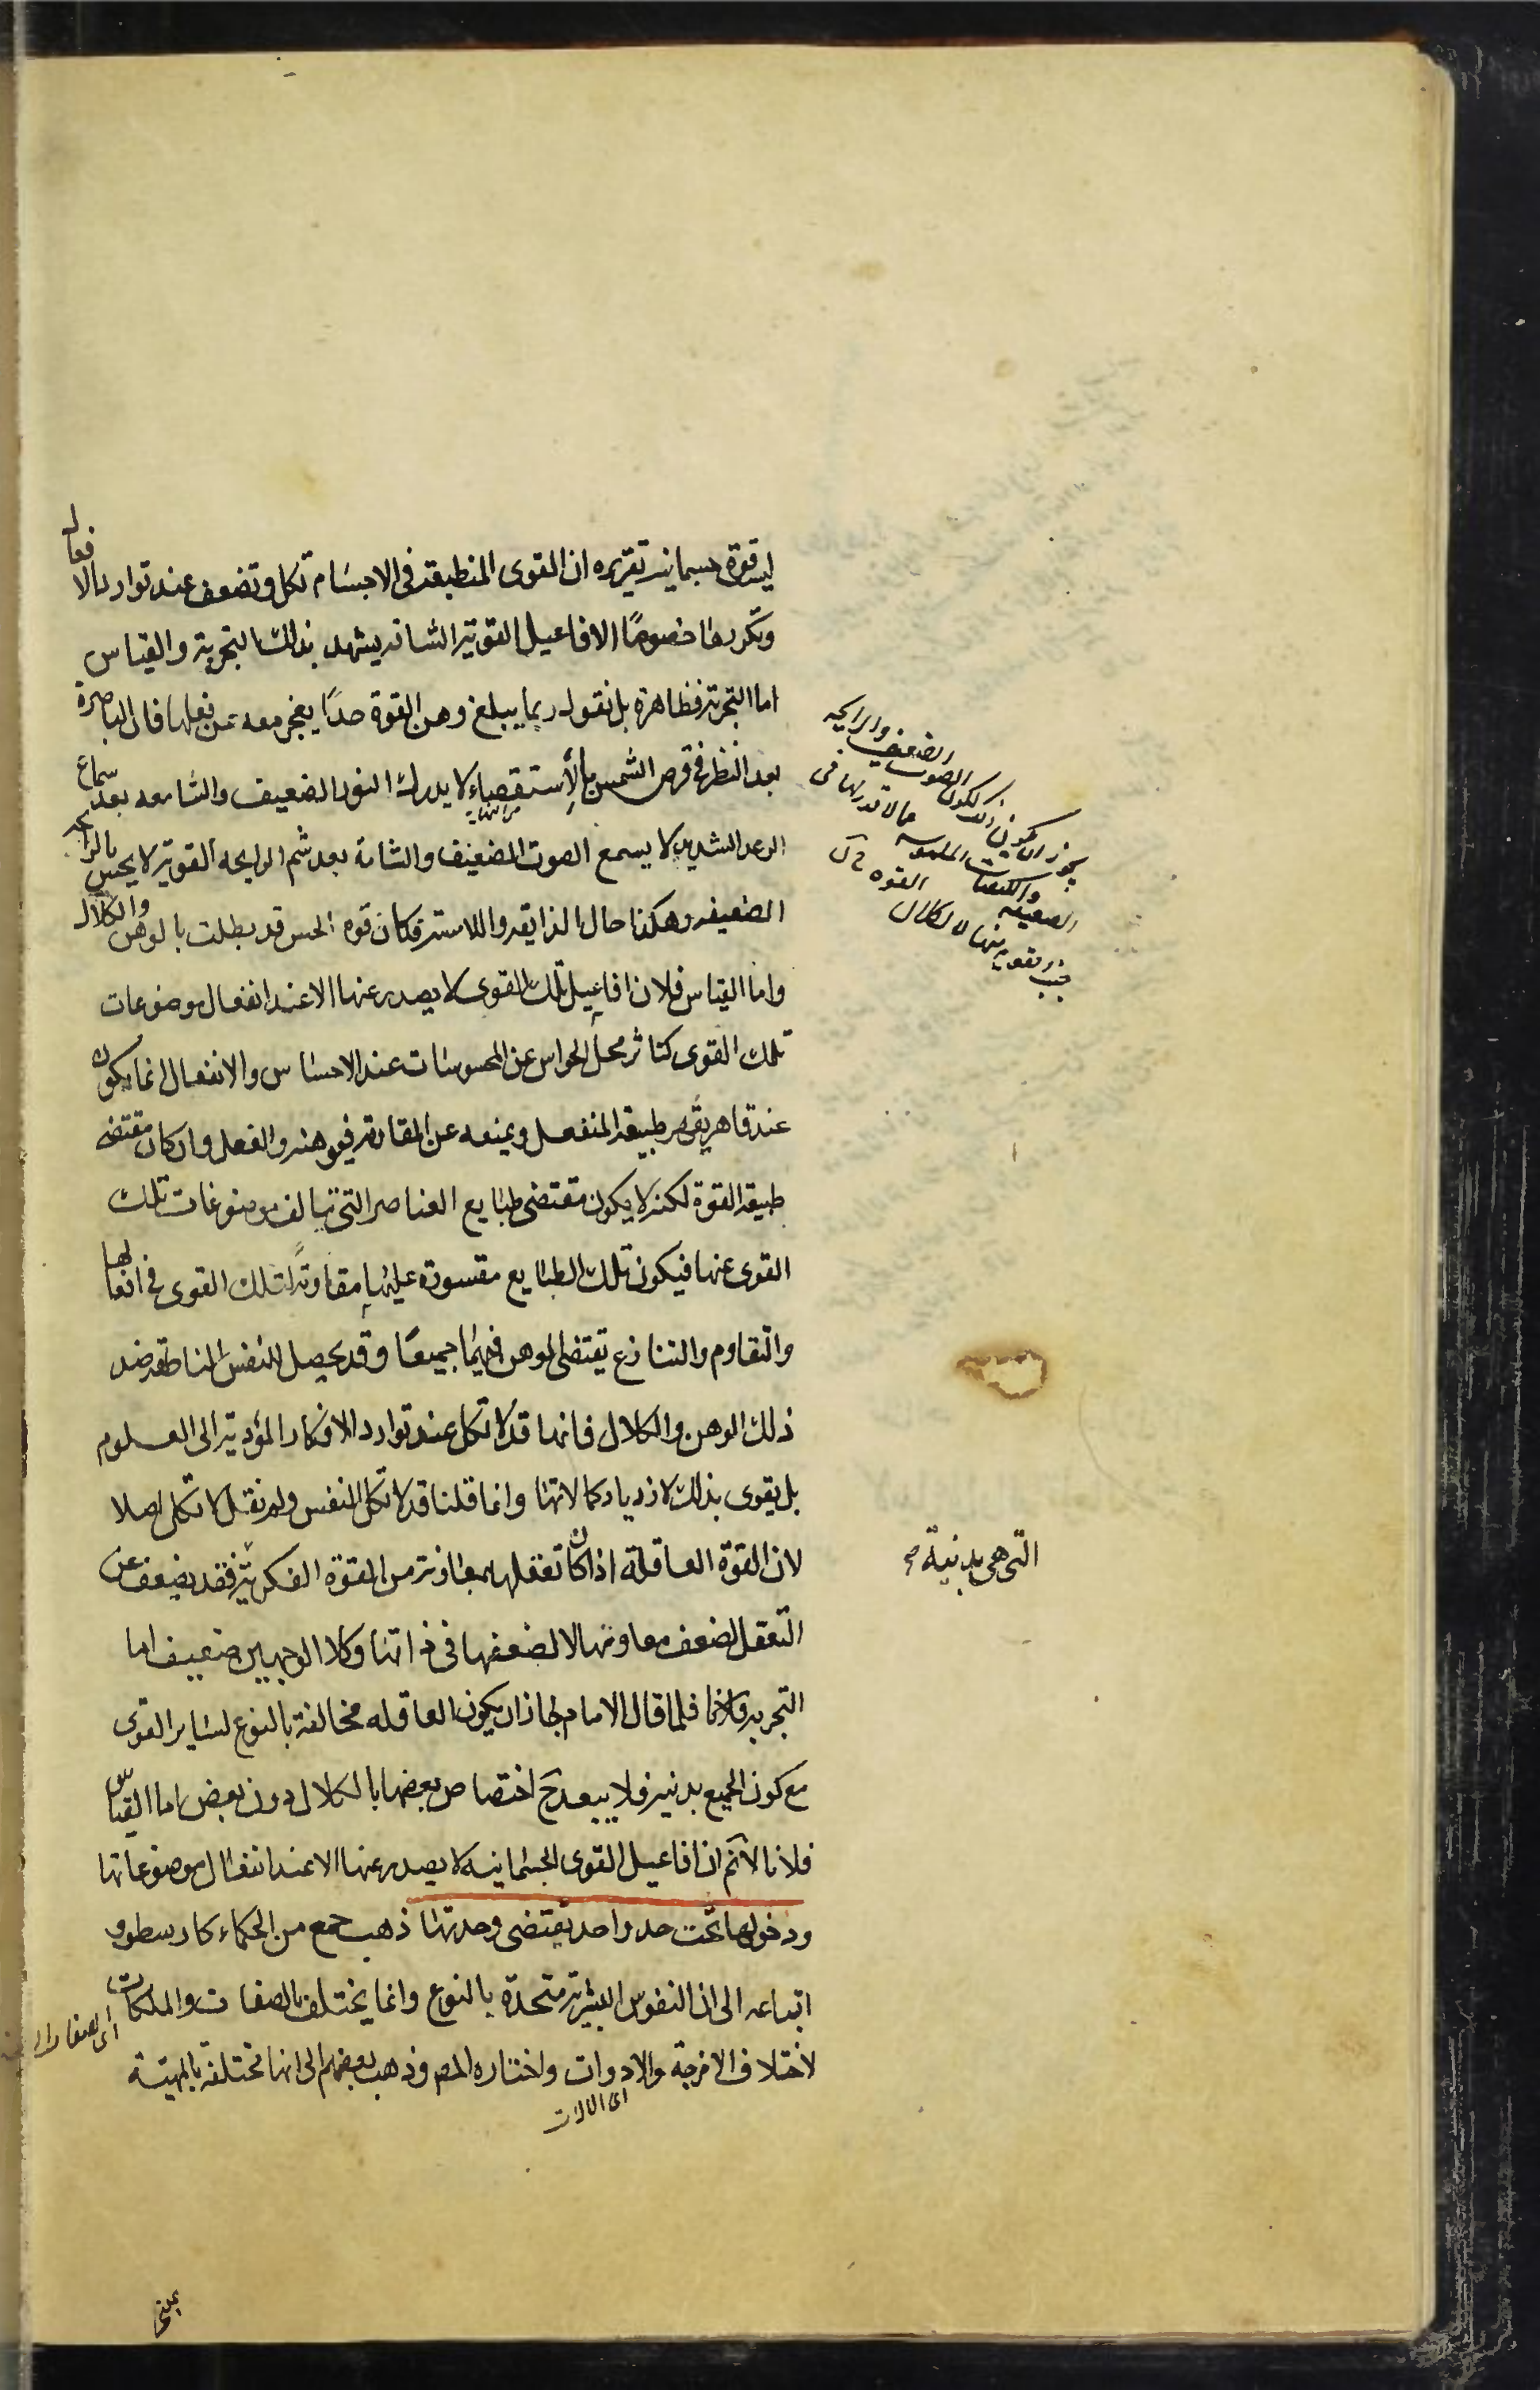 ليست قوة جسمانية تقريره ان القوى المنطبقة فى الاجسام تكل وتضعف عند توارد الافعال
وتكررها خصوصًا الافاعيل القوية الشاقة يشهد بذلك التجربة والقياس
اما التجربة فظاهرة بل نقول ربما يبلغ وهن القوة حدًا يعجز معه عن فعلها فان الباصرة
بعد النظر فى قرص الشمس بالأستقصاء لا يدرك النور الضعيف والسامعه بعد سماع
الرعد الشديد لا يسمع الصوت الضعيف والشامة بعد شم الرايحه القوية لا يحس بالرايحة
الضعيفه وهكذا حال الذايقه واللامسة فكان قوه الحس قد بطلت بالوهن والكلال
واما القياس فلان افاعيل تلك القوى لا يصدر عنها الا عند انفعال موضوعات
تلك القوى كتاثر محل الحواس عن المحسوسات عند الاحساس والانفعال انما يكون
عند قاهر يقهر طبيعة المنفعل ويمنعه عن المقاومة فيوهنه والفعل وان كان مقتضى
طبيعة القوة لكنه لا يكون مقتضى طبايع العناصر التى تتالف موضوعات تلك
القوى عنها فيكون تلك الطبايع مقسورة عليها مقاومة لتلك القوى فى افعالها
والتقاوم والتنازع يقتضى الوهن فيهما جميعًا وقد يحصل للنفس الناطقه ضد
ذلك الوهن والكلال فانها قد لا تكل عند توارد الافكار المؤدية الى العلوم
بل يقوى بذلك لازدياد كمالاتها وانما قلنا قد لا تكل النفس ولم نقل لا تكل اصلا
لان القوة العاقلة اذا كان تعقلها بمعاونة من القوة الفكرية فقد يضعف عن
التعقل لضعف معاونها لا لضعفها فى ذاتها وكلا الوجهين ضعيف اما
التجربه فلما قال الامام لجاز ان يكون العاقله مخالفة بالنوع لساير القوى
مع كون الجميع بدنية فلا يبعد ح اختصاص بعضها بالكلال دون بعض اما القياس
فلانا لانم ان افاعيل القوى الجسمانيه لا يصدر عنها الا عند انفعال موضوعاتها
ودخولها تحت حد واحد يقتضى وحدتها ذهب جمع من الحكماء كارسطو و
اتباعه الى ان النفوس البشرية متحدة بالنوع وانما يختلف بالصفات والملكات
لاختلاف الامزجة والادوات واختاره المص وذهب بعضهم الى انها مختلفة بالمهيّة
اى الالات
يجوز ان يكون ذلك لكون الصوت الضعيف والرايحه
الضعيفه والكيفيات الملموسه
القوه
التى هى بدنية صح